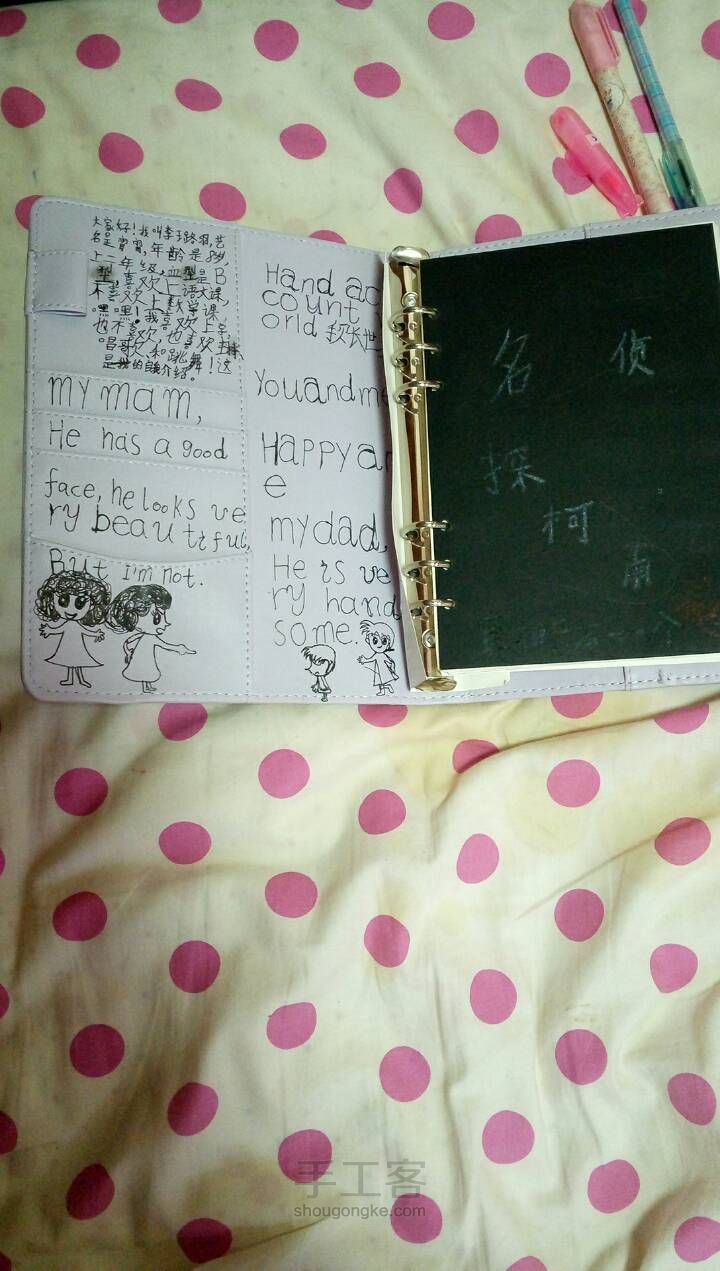 大家好！我叫李
名是宵宵,年龄是8岁,
上二年级,血型是B
型,喜欢上语文课,
不喜欢上数学课,
嘿嘿！我喜欢上
也不喜欢,也喜欢
唱歌,和跳舞！这
是我的自我介绍。
my mam,
He has a good
face, he looks ve
ry beautiful,
But I'm not.
Hand ac
count
orld
You and me
Happy an
e
my dad,
He is ve
ry hand
some.
名 侦
探
柯
南
手工客
shougongke.com